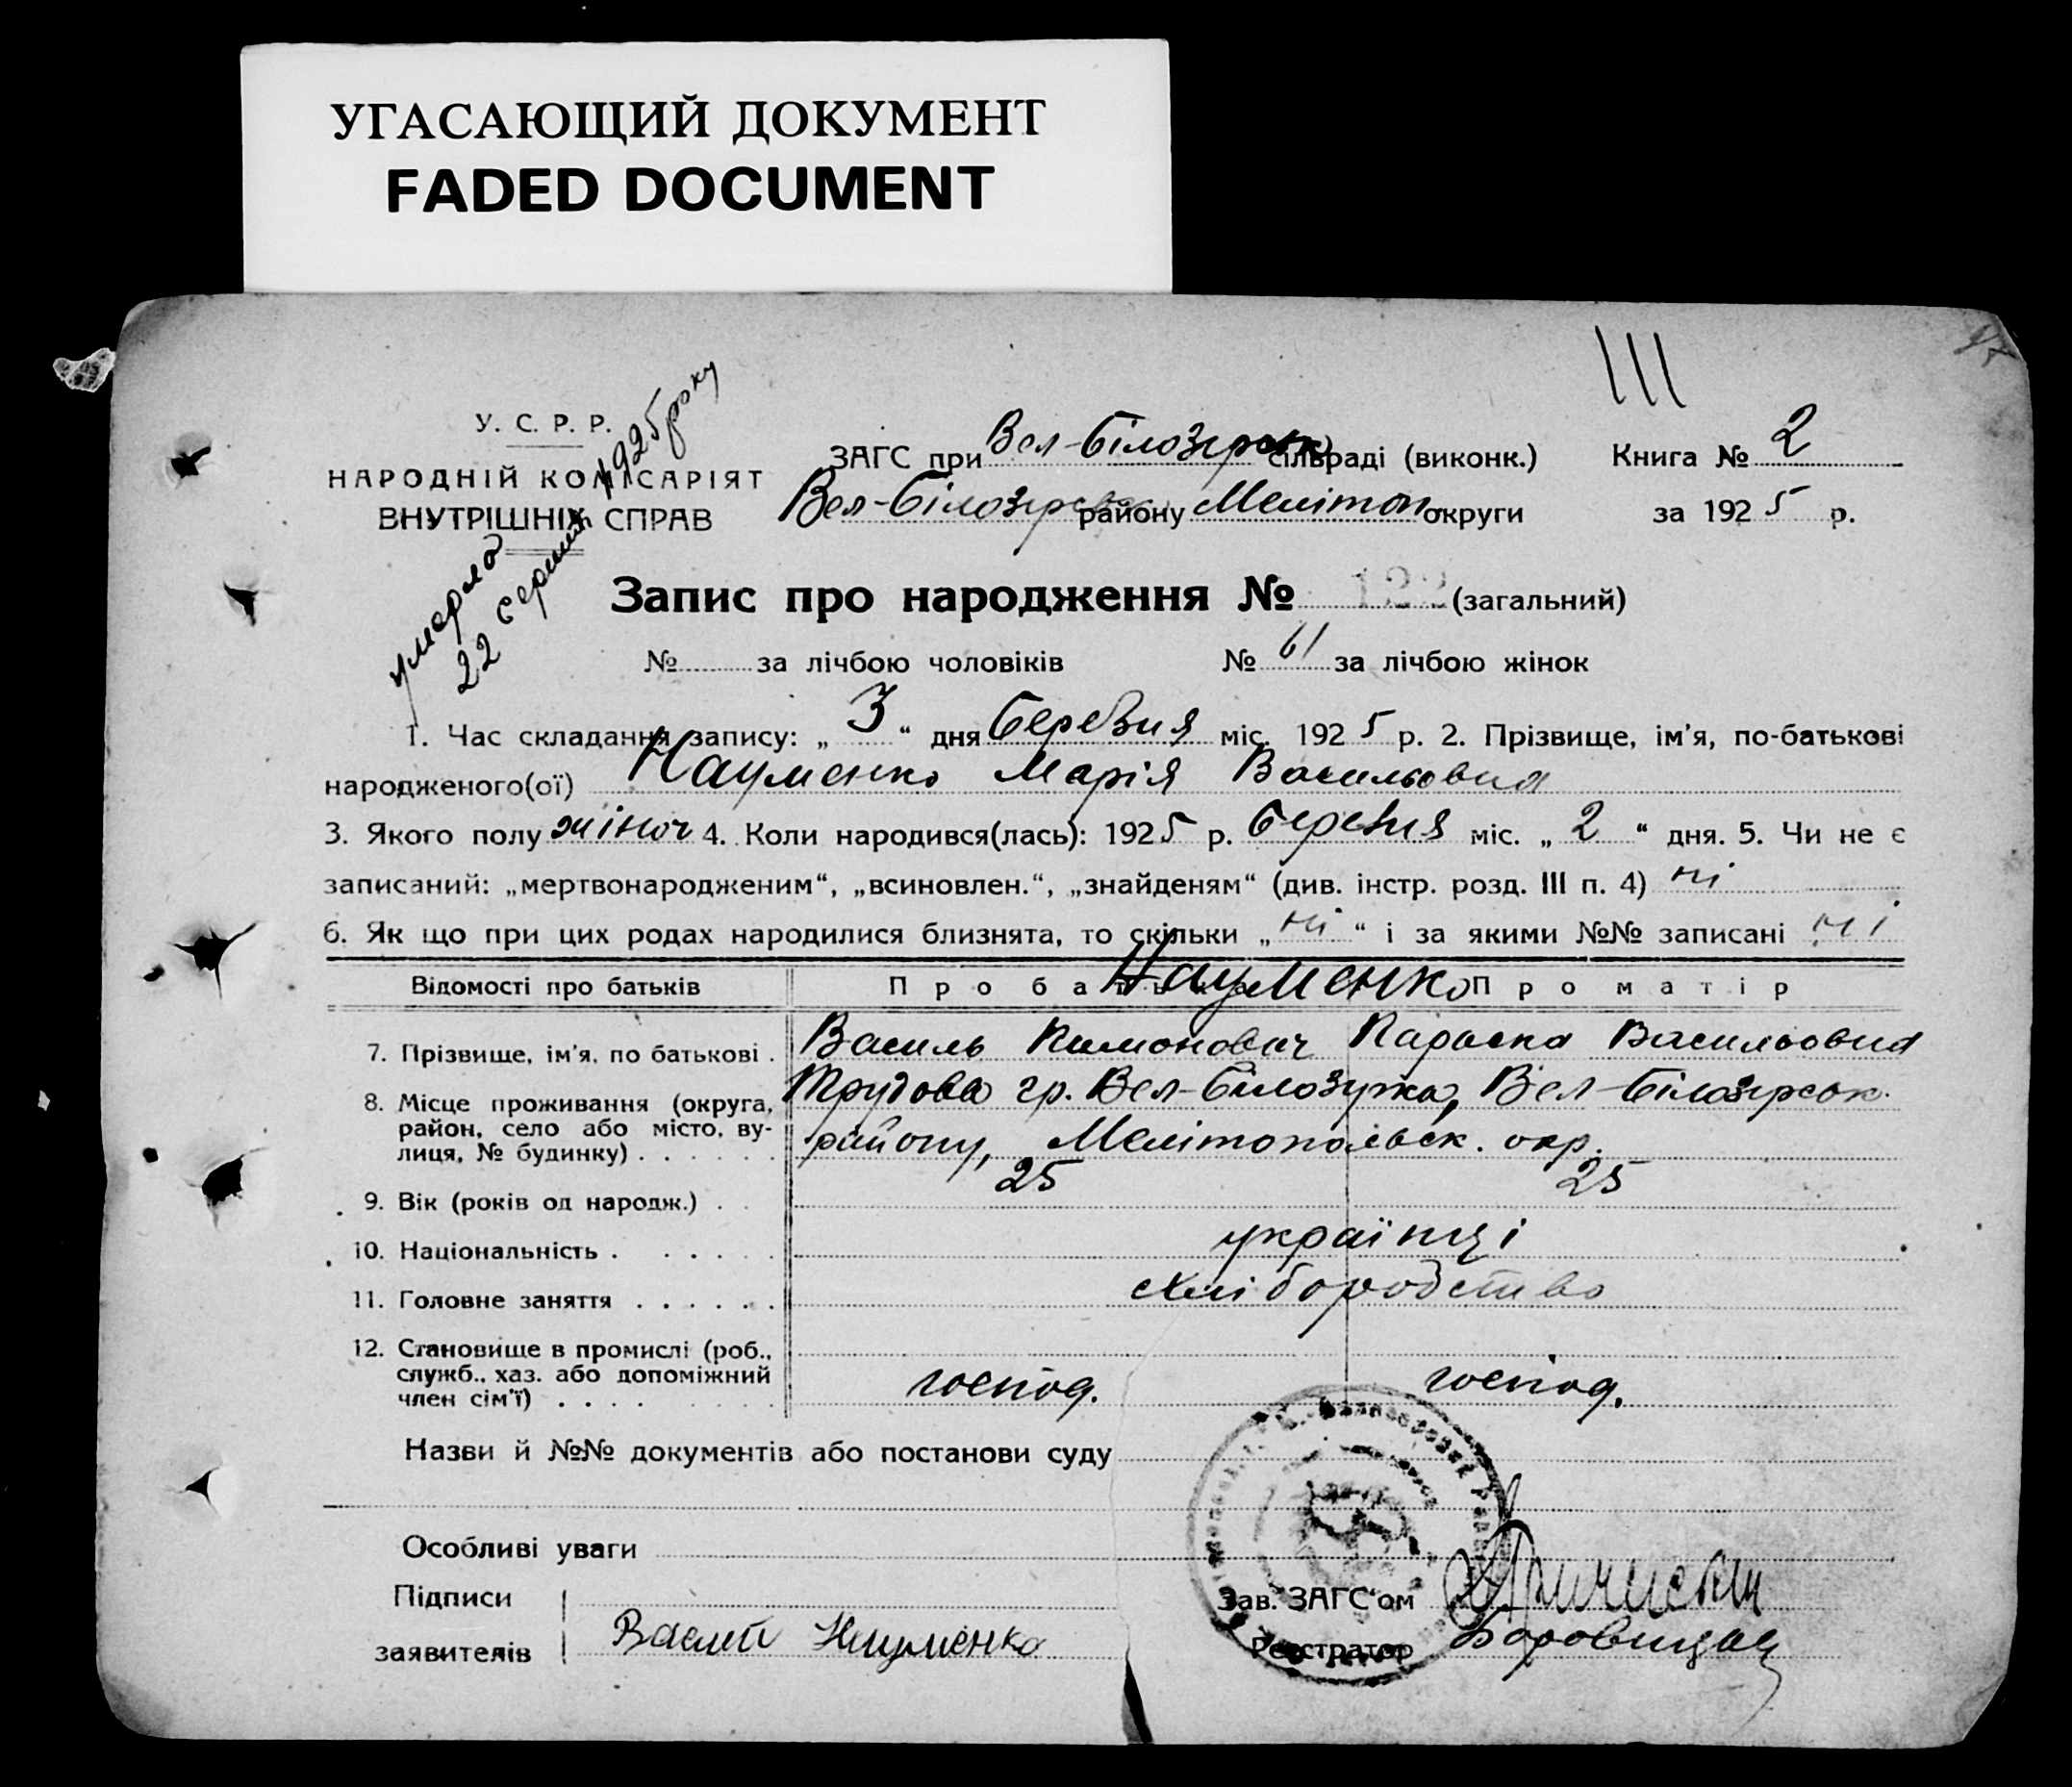 УГАСАЮЩИЙ ДОКУМЕНТ
FADED DOCUMENT
III
У. С. Р. Р.
НАРОДНІЙ КОМІСАРІЯТ
ВНУТРІШНІХ СПРАВ
умерла
22 серпня 1925 року
ЗАГС при Вел-Білозірськ сільраді (виконк.) Книга № 2
Вел-Білозірськ району Мелітоп. округи за 1925 р.
Запис про народження № 122 (загальний)
№ за лічбою чоловіків № 61 за лічбою жінок
1. Час складання запису: „ 3 “ дня березня міс. 1925 р. 2. Прізвище, ім'я, по-батькові
народженого(ої) Науменко Марія Васильовна
3. Якого полу жіноч 4. Коли народився(лась): 1925 р. березня міс. „ 2 “ дня. 5. Чи не є
записаний: „мертвонародженим“, „всиновлен.“, „знайденям“ (див. інстр. розд. III п. 4) ні
6. Як що при цих родах народилися близнята, то скільки „ ні “ і за якими №№ записані ні
Відомості про батьків Про батька Науменко Про матір
7. Прізвище, ім'я, по батькові . Василь Параска Васильовна
8. Місце проживання (округа, Трудова гр. Вел-Білозурка, Вел-Білозірськ.
район, село або місто, ву-
лиця, № будинку) . . . . . . району, Мелітопольск. окр.
9. Вік (років од народж.) . . 25 25
10. Національність . . . . . . українці
11. Головне заняття . . . . . . хліборобство
12. Становище в промислі (роб.,
служб., хаз. або допоміжний господ. господ.
член сім'ї) . . . .
Назви й №№ документів або постанови суду
Особливі уваги
Підписи
заявителів Василь Науменко
Зав. ЗАГС'ом
Реєстратор